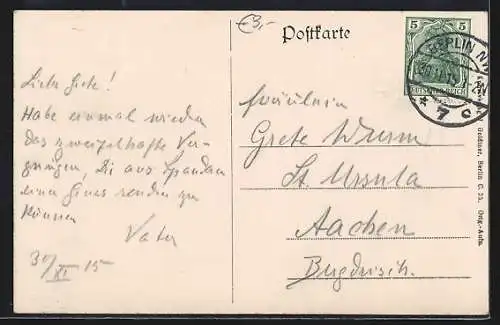 €3,-
Postkarte
5 5
DEUTSCHES REICH
BERLIN NW
7 c
Liebe Grete!
Habe einmal wieder
das zweifelhafte Ver-
gnügen, Dir aus Spandau
einen Gruss senden zu
können
Vater
30/XI 15
Fräulein
Grete Wurm
St. Ursula
Aachen
Goldiner, Berlin C. 25. Orig.-Aufn.